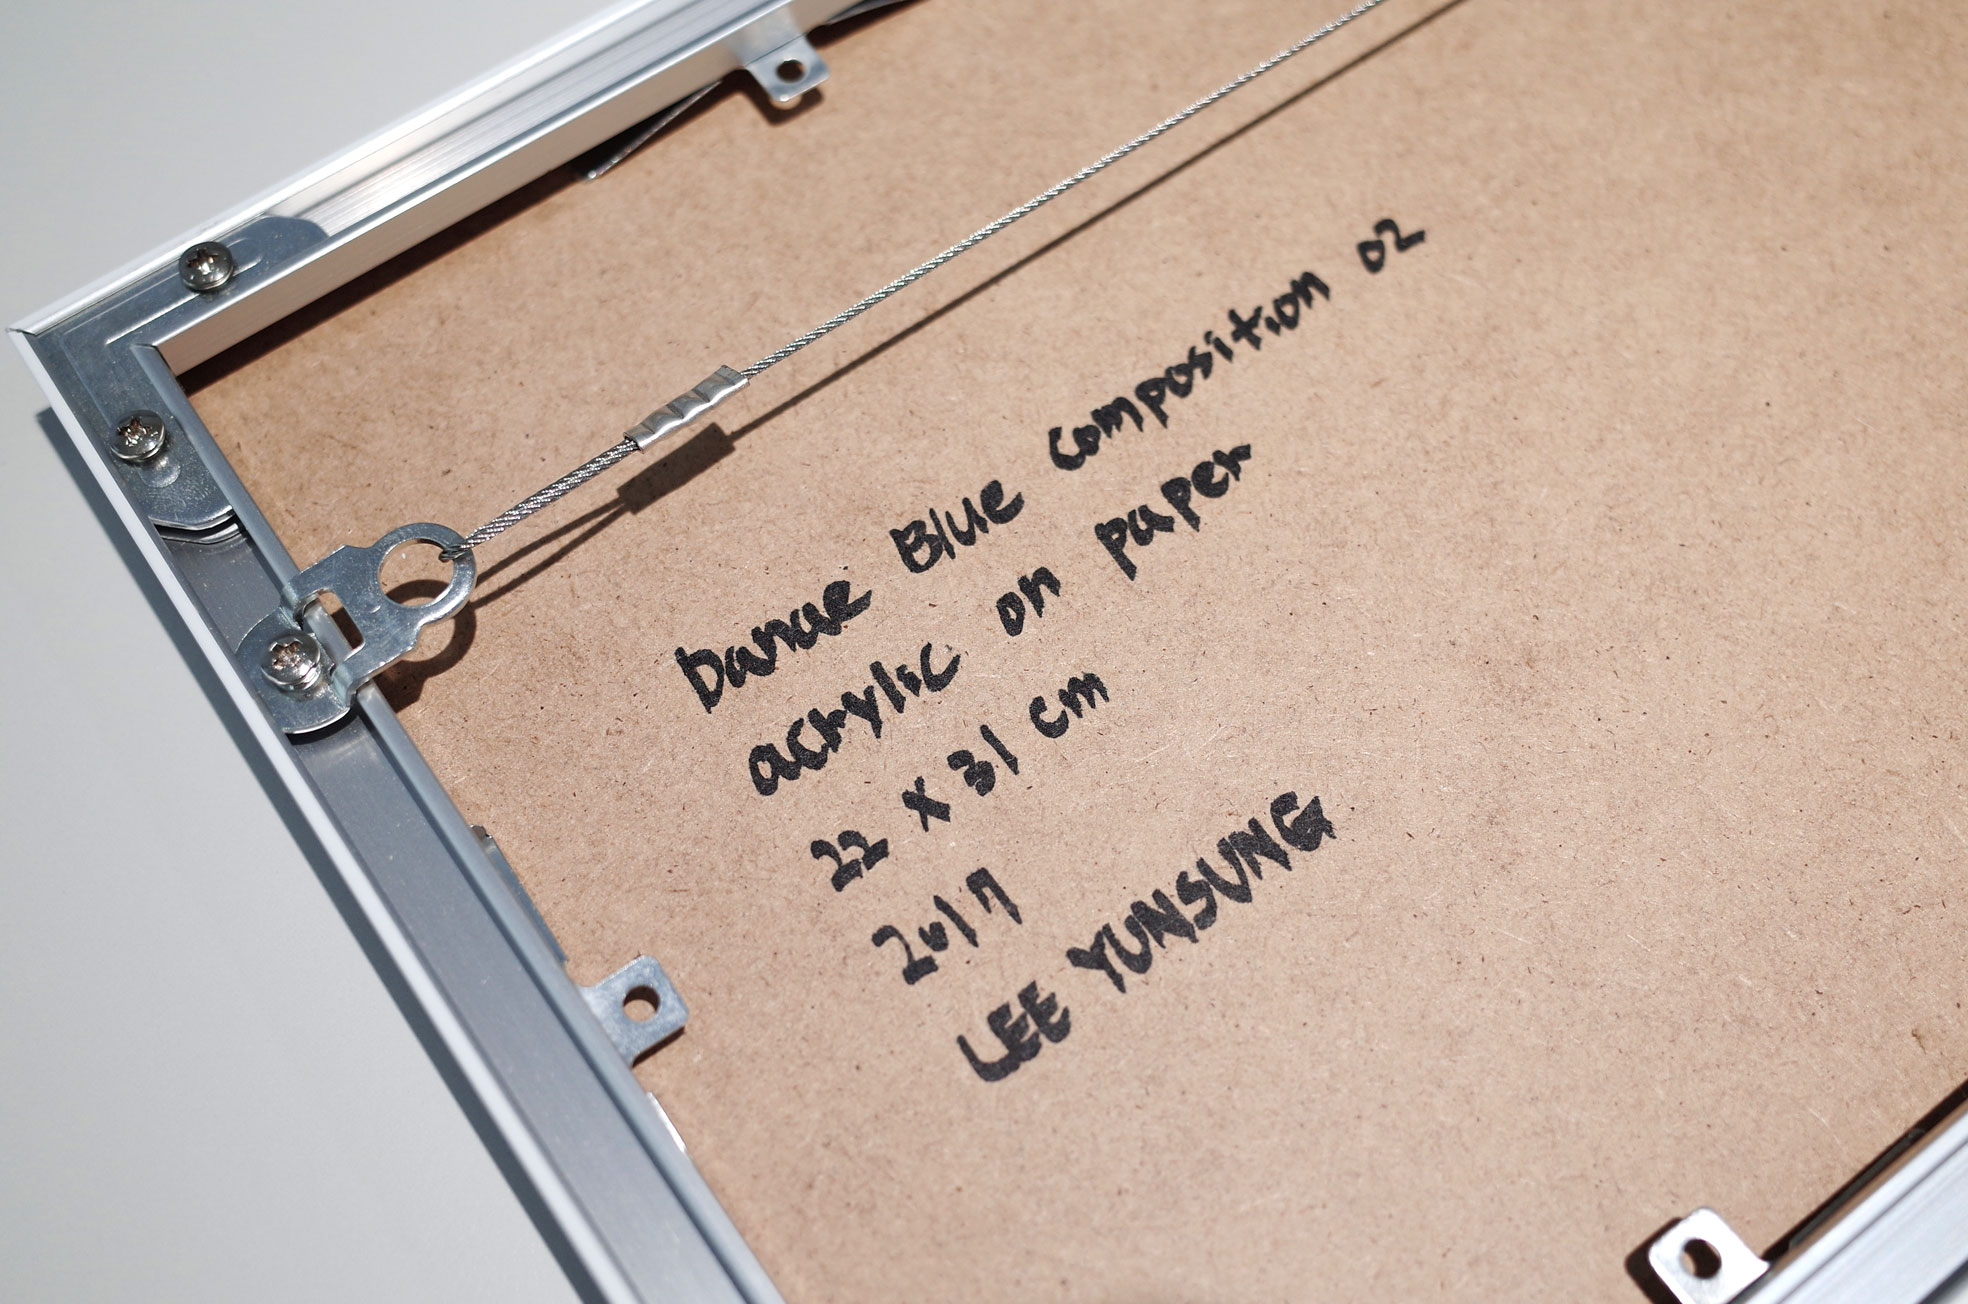 Danae Blue composition 02
acrylic on paper
22 x 31 cm
2017
LEE YUNSUNG